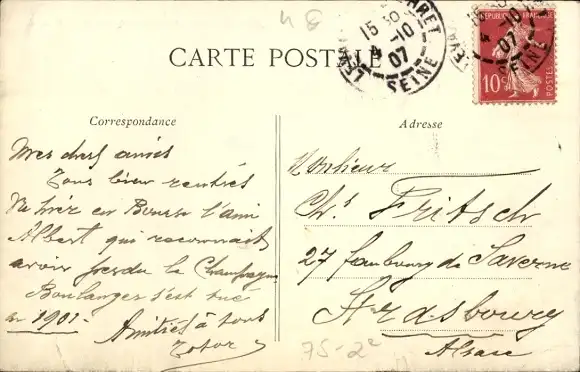 CARTE POSTALE
LEVALLOIS-PERRET
15 30
4 -10
07
SEINE
RÉPUBLIQUE FRANÇAISE
10c
POSTES
Correspondance
Mes chers amis
Tous bien rentrés
en Bourse l'ami
Albert qui reconnait
avoir perdu le Champagne
Boulanger s'est tué
en 1901-
Amitiés à tous
Totor
Adresse
Monsieur
Chs Fritsch
27 faubourg de Saverne
Strasbourg
Alsace
75-2e